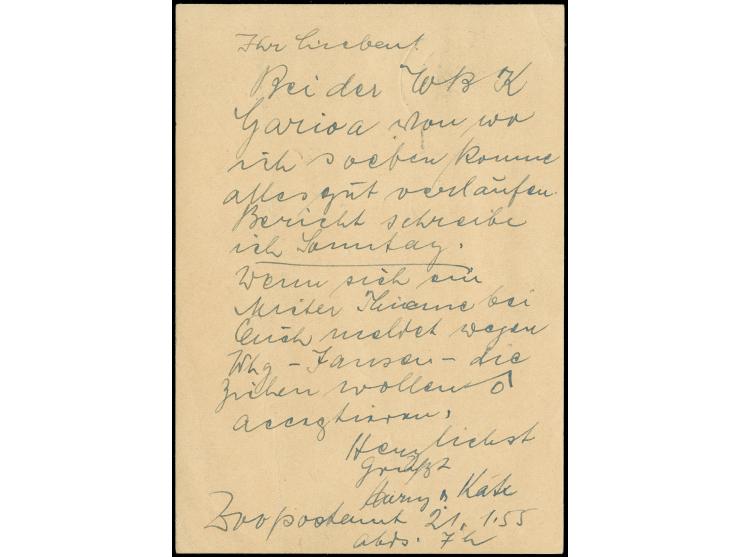 Ihr Lieben!
Bei der WBK
Garioa von wo
ich soeben komme
alles gut verlaufen.
Bericht schreibe
ich Sonntag.
Wenn sich ein
Mieter Thieme bei
Euch meldet wegen
Whg - Jansen - die
ziehen wollen
acceptieren.
Herzlichst
Grüßt
u Käte
Zoopostamt 21.1.55
abds. 7h